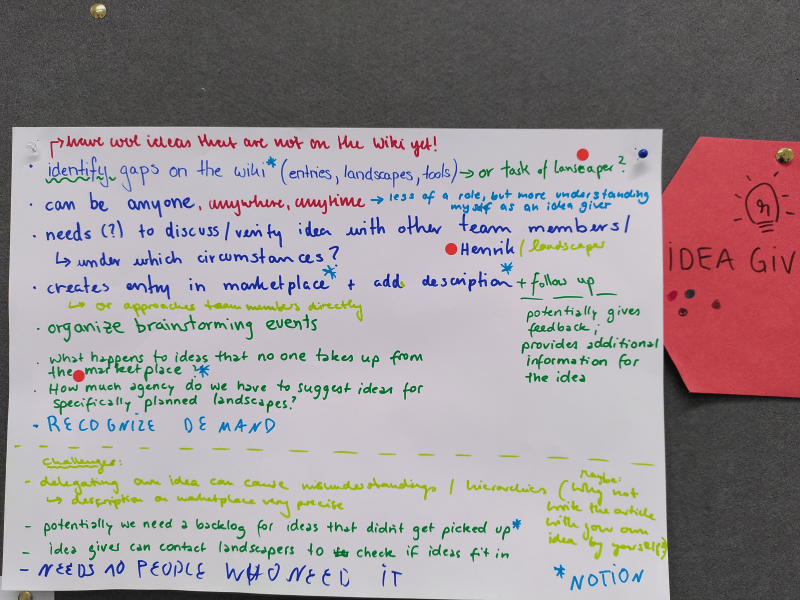 → have cool ideas that are not on the wiki yet!
· identify gaps on the wiki* (entries, landscapes, tools) → or task of landscaper?
· can be anyone, anywhere, anytime → less of a role, but more understanding
myself as an idea giver
· needs (?) to discuss/verify idea with other team members/
↳ under which circumstances? Henrik/landscaper
· creates entry in marketplace* + adds description* + follow up
↳ or approaches team members directly
potentially gives
feedback;
provides additional
information for
the idea
· organize brainstorming events
· What happens to ideas that no one takes up from
the marketplace?*
· How much agency do we have to suggest ideas for
specifically planned landscapes?
· RECOGNIZE DEMAND
Challenges:
- delegating own idea can cause misunderstandings / hierarchies
↳ description on marketplace very precise
(Maybe:
Why not
write the article
with your own
idea by yourself?)
- potentially we need a backlog for ideas that didn't get picked up*
- idea gives can contact landscapers to check if ideas fit in
- NEEDS 10 PEOPLE WHO NEED IT
*NOTION
IDEA GIV